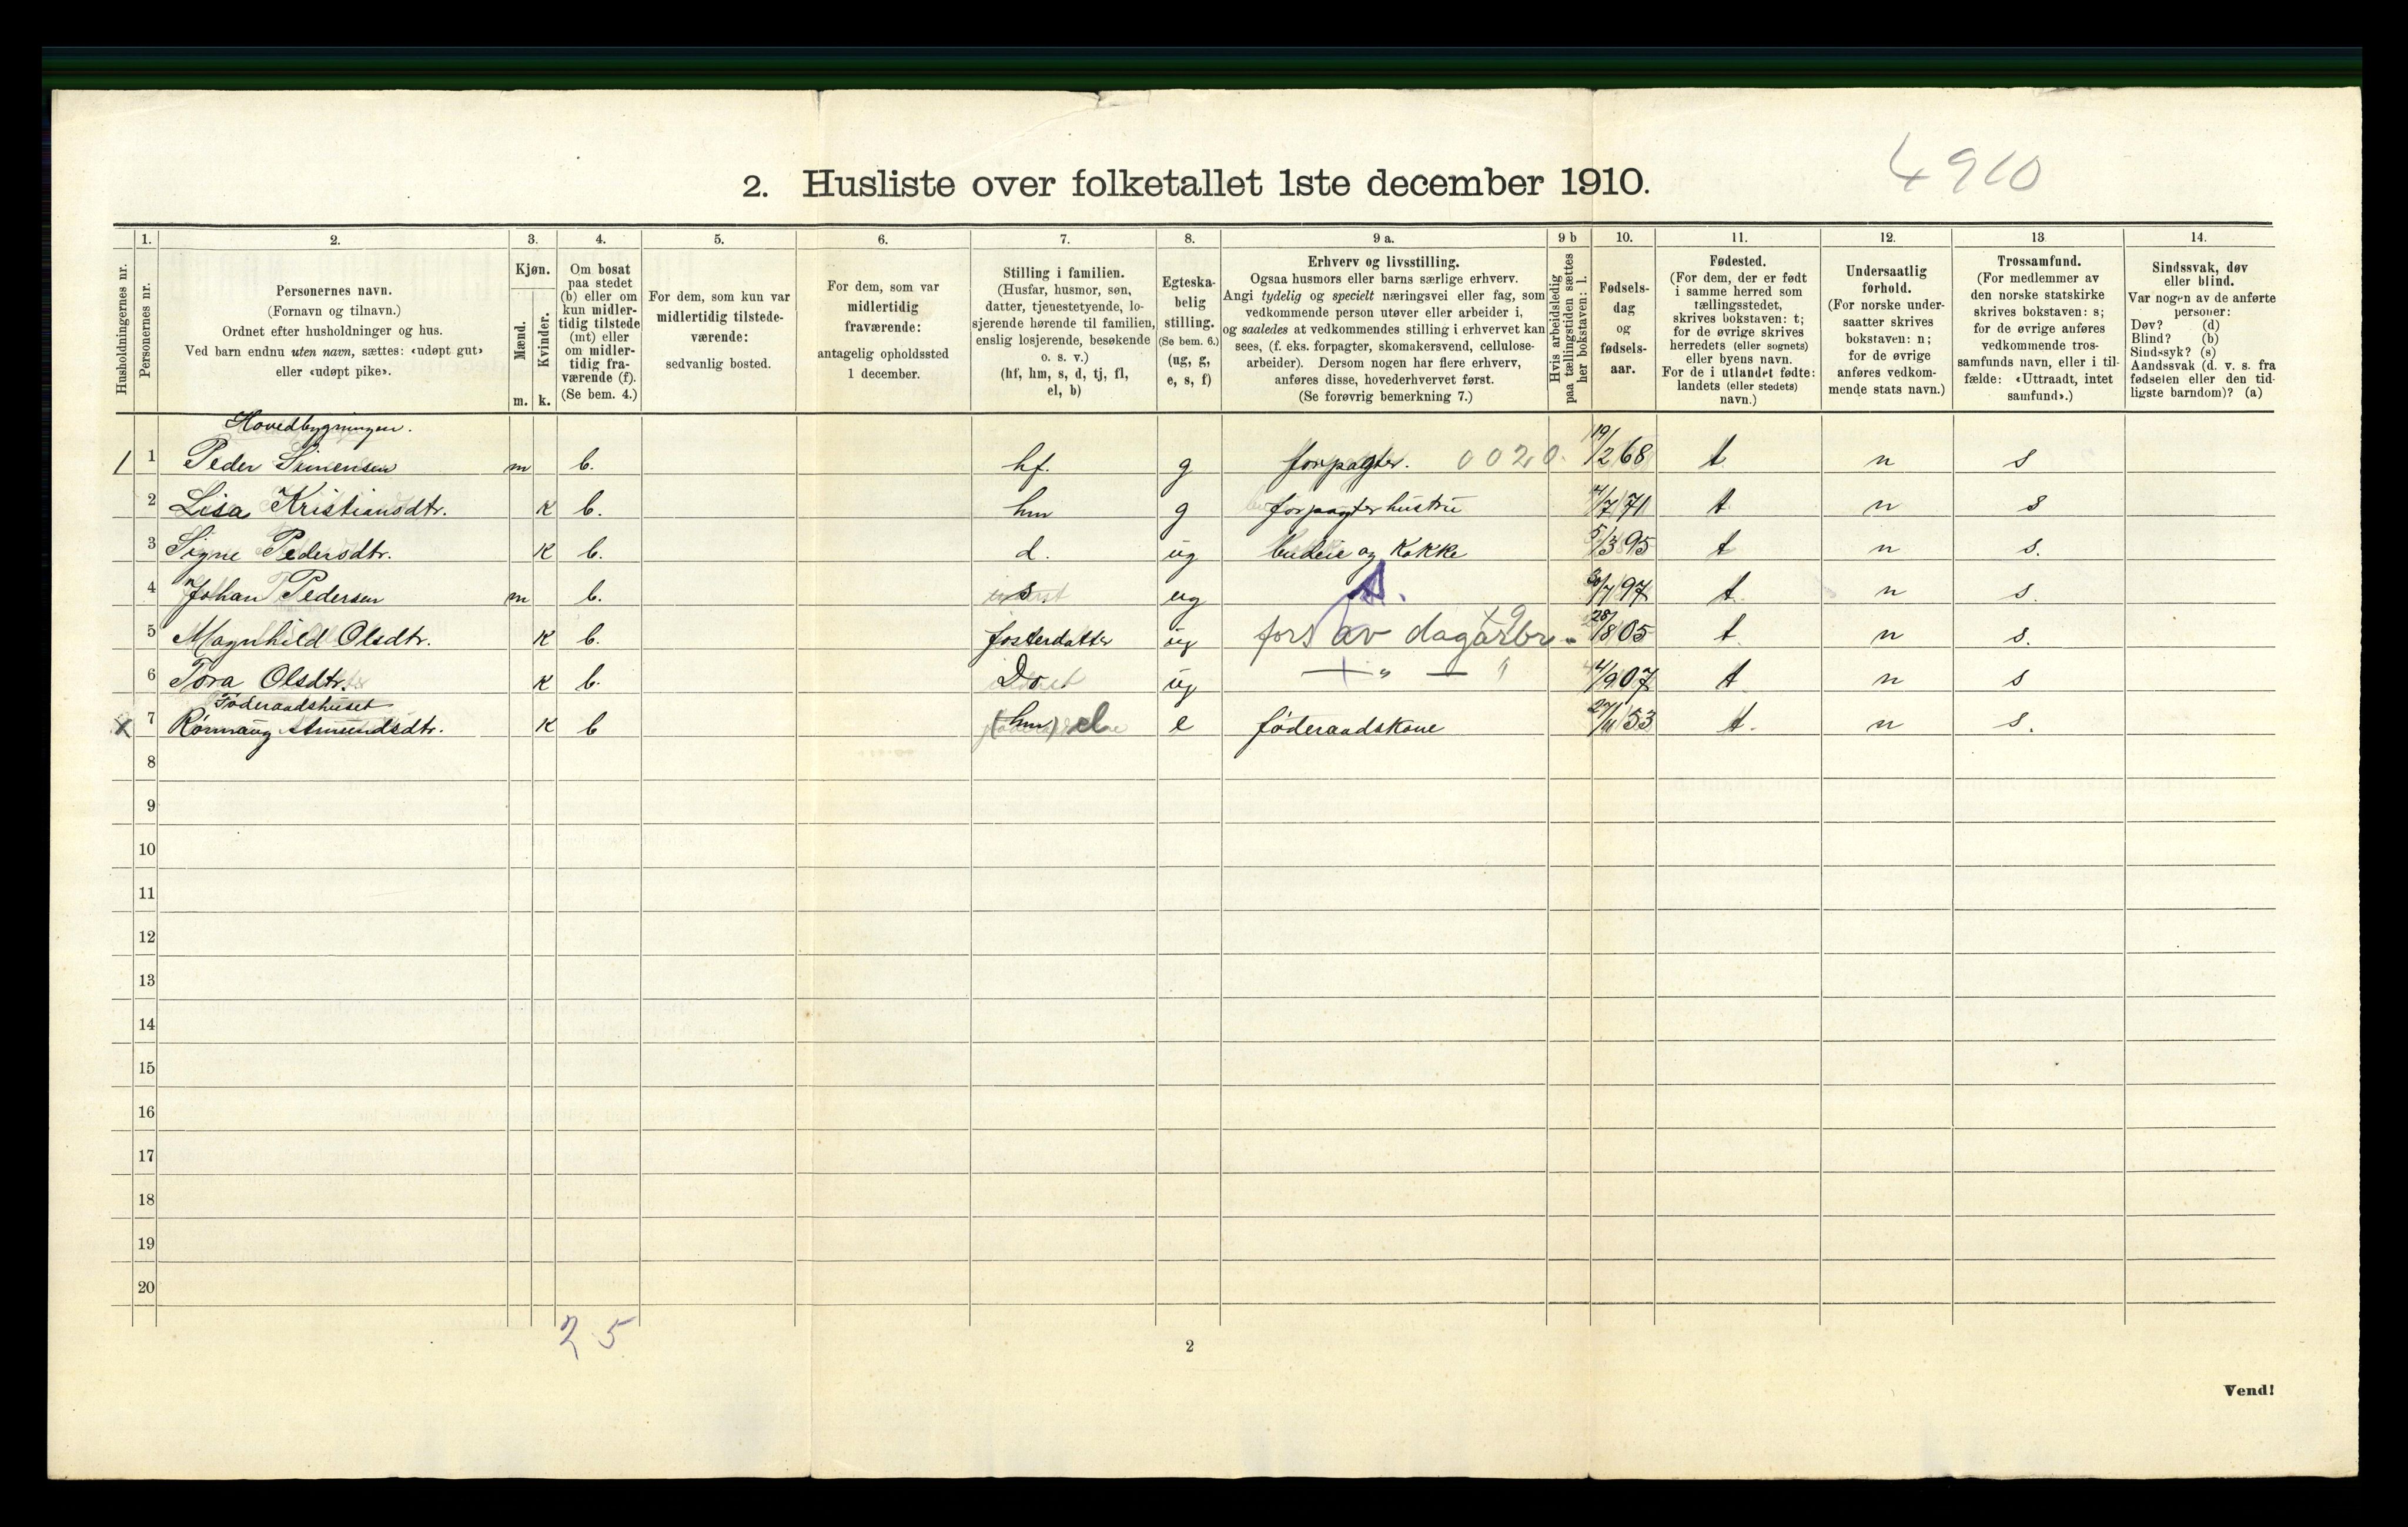 4910
2. Husliste over folketallet 1ste december 1910.
Husholdningernes nr.
1.
Personernes nr.
2.
Personernes navn.
(Fornavn og tilnavn.)
Ordnet efter husholdninger og hus.
Ved barn endnu uten navn, sættes: «udøpt gut»
eller «udøpt pike».
3.
Kjøn.
Mænd.
Kvinder.
m. k.
4.
Om bosat
paa stedet
(b) eller om
kun midler-
tidig tilstede
(mt) eller
om midler-
tidig fra-
værende (f).
(Se bem. 4.)
5.
For dem, som kun var
midlertidig tilstede-
værende:
sedvanlig bosted.
6.
For dem, som var
midlertidig
fraværende:
antagelig opholdssted
1 december.
7.
Stilling i familien.
(Husfar, husmor, søn,
datter, tjenestetyende, lo-
sjerende hørende til familien,
enslig losjerende, besøkende
o. s. v.)
(hf, hm, s, d, tj, fl,
el, b)
8.
Egteska-
belig
stilling.
(Se bem. 6.)
(ug, g,
e, s, f)
9 a.
Erhverv og livsstilling.
Ogsaa husmors eller barns særlige erhverv.
Angi tydelig og specielt næringsvei eller fag, som
vedkommende person utøver eller arbeider i,
og saaledes at vedkommendes stilling i erhvervet kan
sees, (f. eks. forpagter, skomakersvend, cellulose-
arbeider). Dersom nogen har flere erhverv,
anføres disse, hovederhvervet først.
(Se forøvrig bemerkning 7.)
9 b
Hvis arbeidsledig
paa tællingstiden sættes
her bokstaven: l.
10.
Fødsels-
dag
og
fødsels-
aar.
11.
Fødested.
(For dem, der er født
i samme herred som
tællingsstedet,
skrives bokstaven: t;
for de øvrige skrives
herredets (eller sognets)
eller byens navn.
For de i utlandet fødte:
landets (eller stedets)
navn.)
12.
Undersaatlig
forhold.
(For norske under-
saatter skrives
bokstaven: n;
for de øvrige
anføres vedkom-
mende stats navn.)
13
Trossamfund.
(For medlemmer av
den norske statskirke
skrives bokstaven: s;
for de øvrige anføres
vedkommende tros-
samfunds navn, eller i til-
fælde: «Uttraadt, intet
samfund».)
14.
Sindssvak, døv
eller blind.
Var nogen av de anførte
personer:
Døv? (d)
Blind? (b)
Sindssyk? (s)
Aandssvak (d. v. s. fra
fødselen eller den tid-
ligste barndom)? (a)
Hovedbygningen.
1 1 Peder Simensen m b. hf. g forpagter. 0020. 19/2 68 t n s
2 Lisa Kristiansdtr. K b. hm g forpagterhustru 4/7 71 t n s
3 Signe Pedersdtr. K b. d. ug budeie og Kokke 5/3 95 t n s.
4 Johan Pedersen m b. s ug s. 30/7 97 t. n s.
5 Magnhild Olsdtr. K b. fosterdatter ug fors av dagarbr. 28/8 05 t. n s.
6 Tora Olsdtr. K b. Do ug — " — " 4/9 07 t n s
Føderaadshuset
x 7 Rønnaug Amundsdtr. K b (hm) el e føderaadskone 27/11 53 t. n s.
8
9
10
11
12
13
14
15
16
17
18
19
20
2 5
2
Vend!